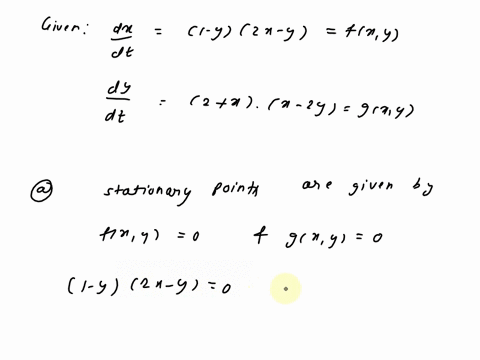 Given: dx/dt = (1-y) (2x-y) = f(x,y)
dy/dt = (2+x). (x-2y) = g(x,y)
(a) stationary points are given by
f(x,y) = 0 f g(x,y) = 0
(1-y) (2x-y) = 0